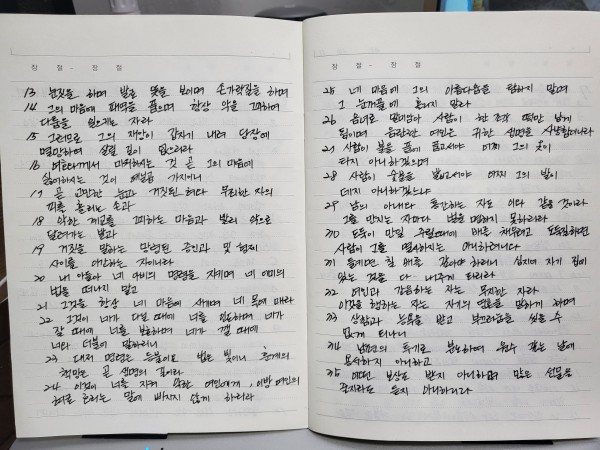 장 절 - 장 절
13 눈짓을 하며 발로 뜻을 보이며 손가락질을 하며
14 그의 마음에 패역을 품으며 항상 악을 꾀하여
다툼을 일으키는 자라
15 그러므로 그의 재앙이 갑자기 내려 당장에
멸망하여 살릴 길이 없으리라
16 여호와께서 미워하시는 것 곧 그의 마음에
싫어하시는 것이 예닐곱 가지이니
17 곧 교만한 눈과 거짓된 혀와 무죄한 자의
피를 흘리는 손과
18 악한 계교를 꾀하는 마음과 빨리 악으로
달려가는 발과
19 거짓을 말하는 망령된 증인과 및 형제
사이를 이간하는 자이니라
20 내 아들아 네 아비의 명령을 지키며 네 어미의
법을 떠나지 말고
21 그것을 항상 네 마음에 새기며 네 목에 매라
22 그것이 네가 다닐 때에 너를 인도하며 네가
잘 때에 너를 보호하며 네가 깰 때에
너와 더불어 말하리니
23 대저 명령은 등불이요 법은 빛이니 훈계의
책망은 곧 생명의 길이라
24 이것이 너를 지켜 악한 여인에게, 이방 여인의
혀로 호리는 말에 빠지지 않게 하리라
장 절 - 장 절
25 네 마음에 그의 아름다움을 탐하지 말며
그 눈꺼풀에 홀리지 말라
26 음녀로 말미암아 사람이 한 조각 떡만 남게
됨이며 음란한 여인은 귀한 생명을 사냥함이니라
27 사람이 불을 품에 품고서야 어찌 그의 옷이
타지 아니하겠으며
28 사람이 숯불을 밟고서야 어찌 그의 발이
데지 아니하겠느냐
29 남의 아내와 통간하는 자도 이와 같을 것이라
그를 만지는 자마다 벌을 면하지 못하리라
30 도둑이 만일 주릴 때에 배를 채우려고 도둑질하면
사람이 그를 멸시하지는 아니하려니와
31 들키면 칠 배를 갚아야 하리니 심지어 자기 집에
있는 것을 다 내주게 되리라
32 여인과 간음하는 자는 무지한 자라
이것을 행하는 자는 자기의 영혼을 망하게 하며
33 상함과 능욕을 받고 부끄러움을 씻을 수
없게 되나니
34 남편이 투기로 분노하여 원수 갚는 날에
용서하지 아니하고
35 어떤 보상도 받지 아니하며 많은 선물을
줄지라도 듣지 아니하리라